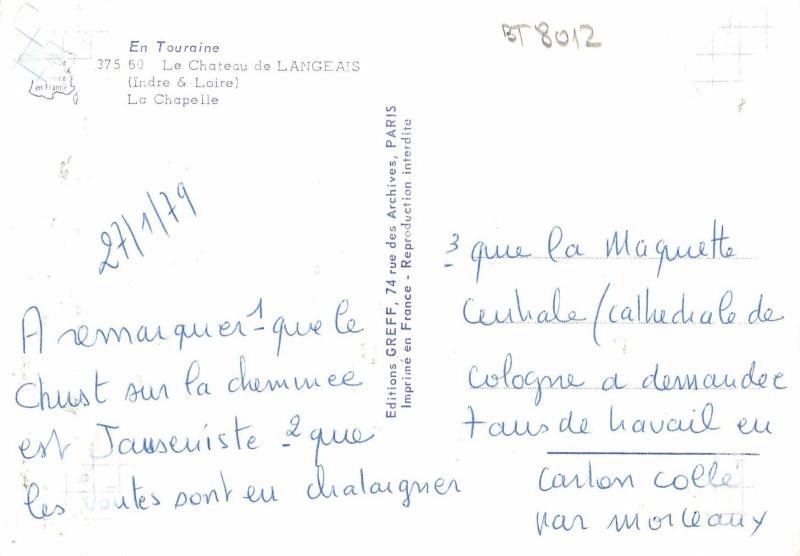 BT 8012
En Touraine
375 60 Le Chateau de LANGEAIS
(Indre & Loire)
La Chapelle
en France
27/1/79
A remarquer 1 que le
Christ sur la cheminee
est Janseniste 2 que
les voutes sont en chataigner
Editions GREFF, 74 rue des Archives, PARIS
Imprimé en France - Reproduction interdite
3 que la Maquette
Centrale / cathedrale de
Cologne a demandee
7 ans de travail en
carton collé
par morceaux